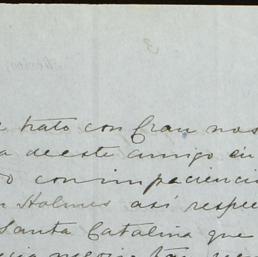 trato con Gran nos
a deeste amigo en
o conimpaciencia
n Holmes así respe
Santa Catalina que